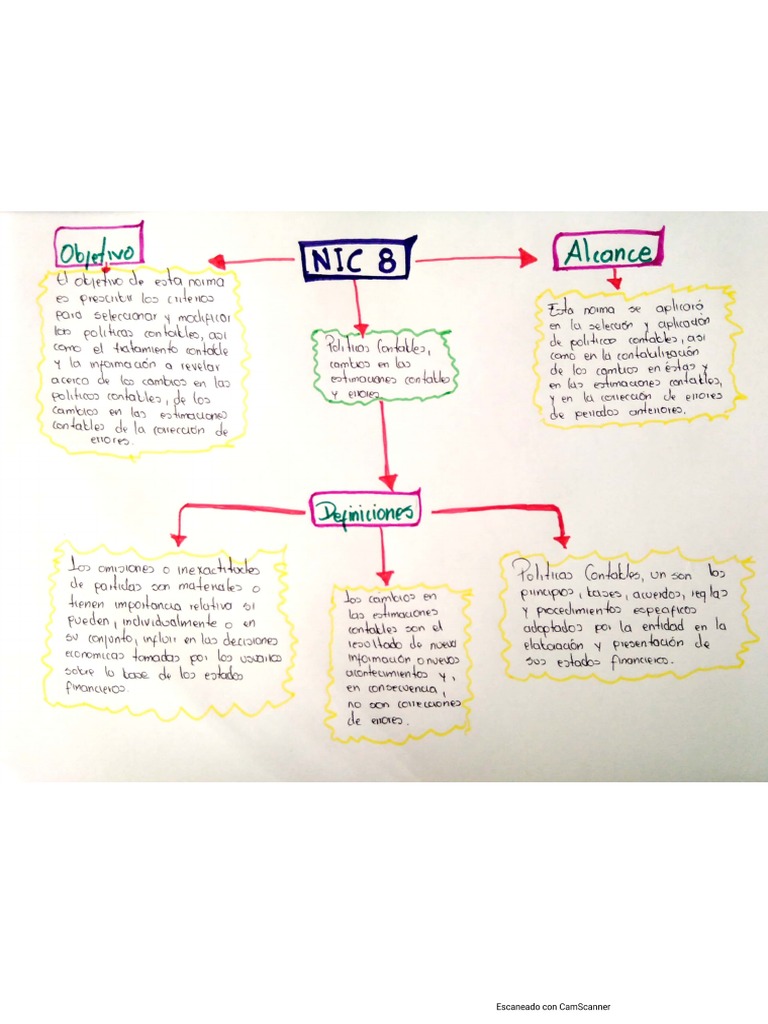 Objetivo
NIC 8
Alcance
El objetivo de esta norma
es prescribir los criterios
para seleccionar y modificar
las políticas contables, así
como el tratamiento contable
y la información a revelar
acerca de los cambios en las
políticas contables, de los
cambios en las estimaciones
contables de la corrección de
errores.
Políticas Contables,
cambios en las
estimaciones contables
y errores.
Esta norma se aplicará
en la selección y aplicación
de políticas contables, así
como en la contabilización
de los cambios en éstas y
en las estimaciones contables,
y en la corrección de errores
de periodos anteriores.
Definiciones
Las omisiones o inexactitudes
de partidas son materiales o
tienen importancia relativa si
pueden, individualmente o en
su conjunto, influir en las decisiones
economicas tomadas por los usuarios
sobre la base de los estados
financieros.
Los cambios en
las estimaciones
contables son el
resultado de nueva
información o nuevos
acontecimientos y,
en consecuencia,
no son correcciones
de errores.
Políticas Contables, un son los
principios, bases, acuerdos, reglas
y procedimientos específicos
adoptados por la entidad en la
elaboración y presentación de
sus estados financieros.
Escaneado con CamScanner